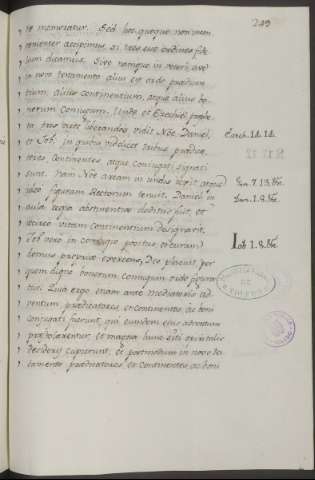 249
te memoratur. Sed hoc quoque non incon
uenienter accipimus, si tres esse ordines fide
lium dicamus. Siue namque in veteri, siue
in nouo testamento alius est ordo prædican
tium, alius continentium, atque alius bo
norum Coniugum. Unde et Ezechiel prophe
ta tres viros liberandos vidit Nöe, Daniel,
et Job. In quibus videlicet tribus prædica
tores, Continentes atque Coniugati signati
sunt. Nam Nöe arcam in undis rexit atque
ideo figuram Rectorum tenuit. Daniel in
aula regia abstinentiæ deditus fuit, et
idcirco vitam continentium designavit.
Job vero in coniugio positus, et curam
domus propriæ exercens, Deo placuit, per
quem digne bonorum coniugum ordo figura
tus. Quia ergo etiam ante mediatoris ad
ventum prædicatores, et continentes, ac boni
coniugati fuerunt, qui eundem eius adventum
præstolarentur, et magna hunc siti spiritalis
desiderij caperent, et postmodum in nouo tes
tamento prædicatores, et Continentes, ac boni
Ezech. 14. 14.
Gen. 7. 13.
Dan. 1. 8.
Iob 1. 8.